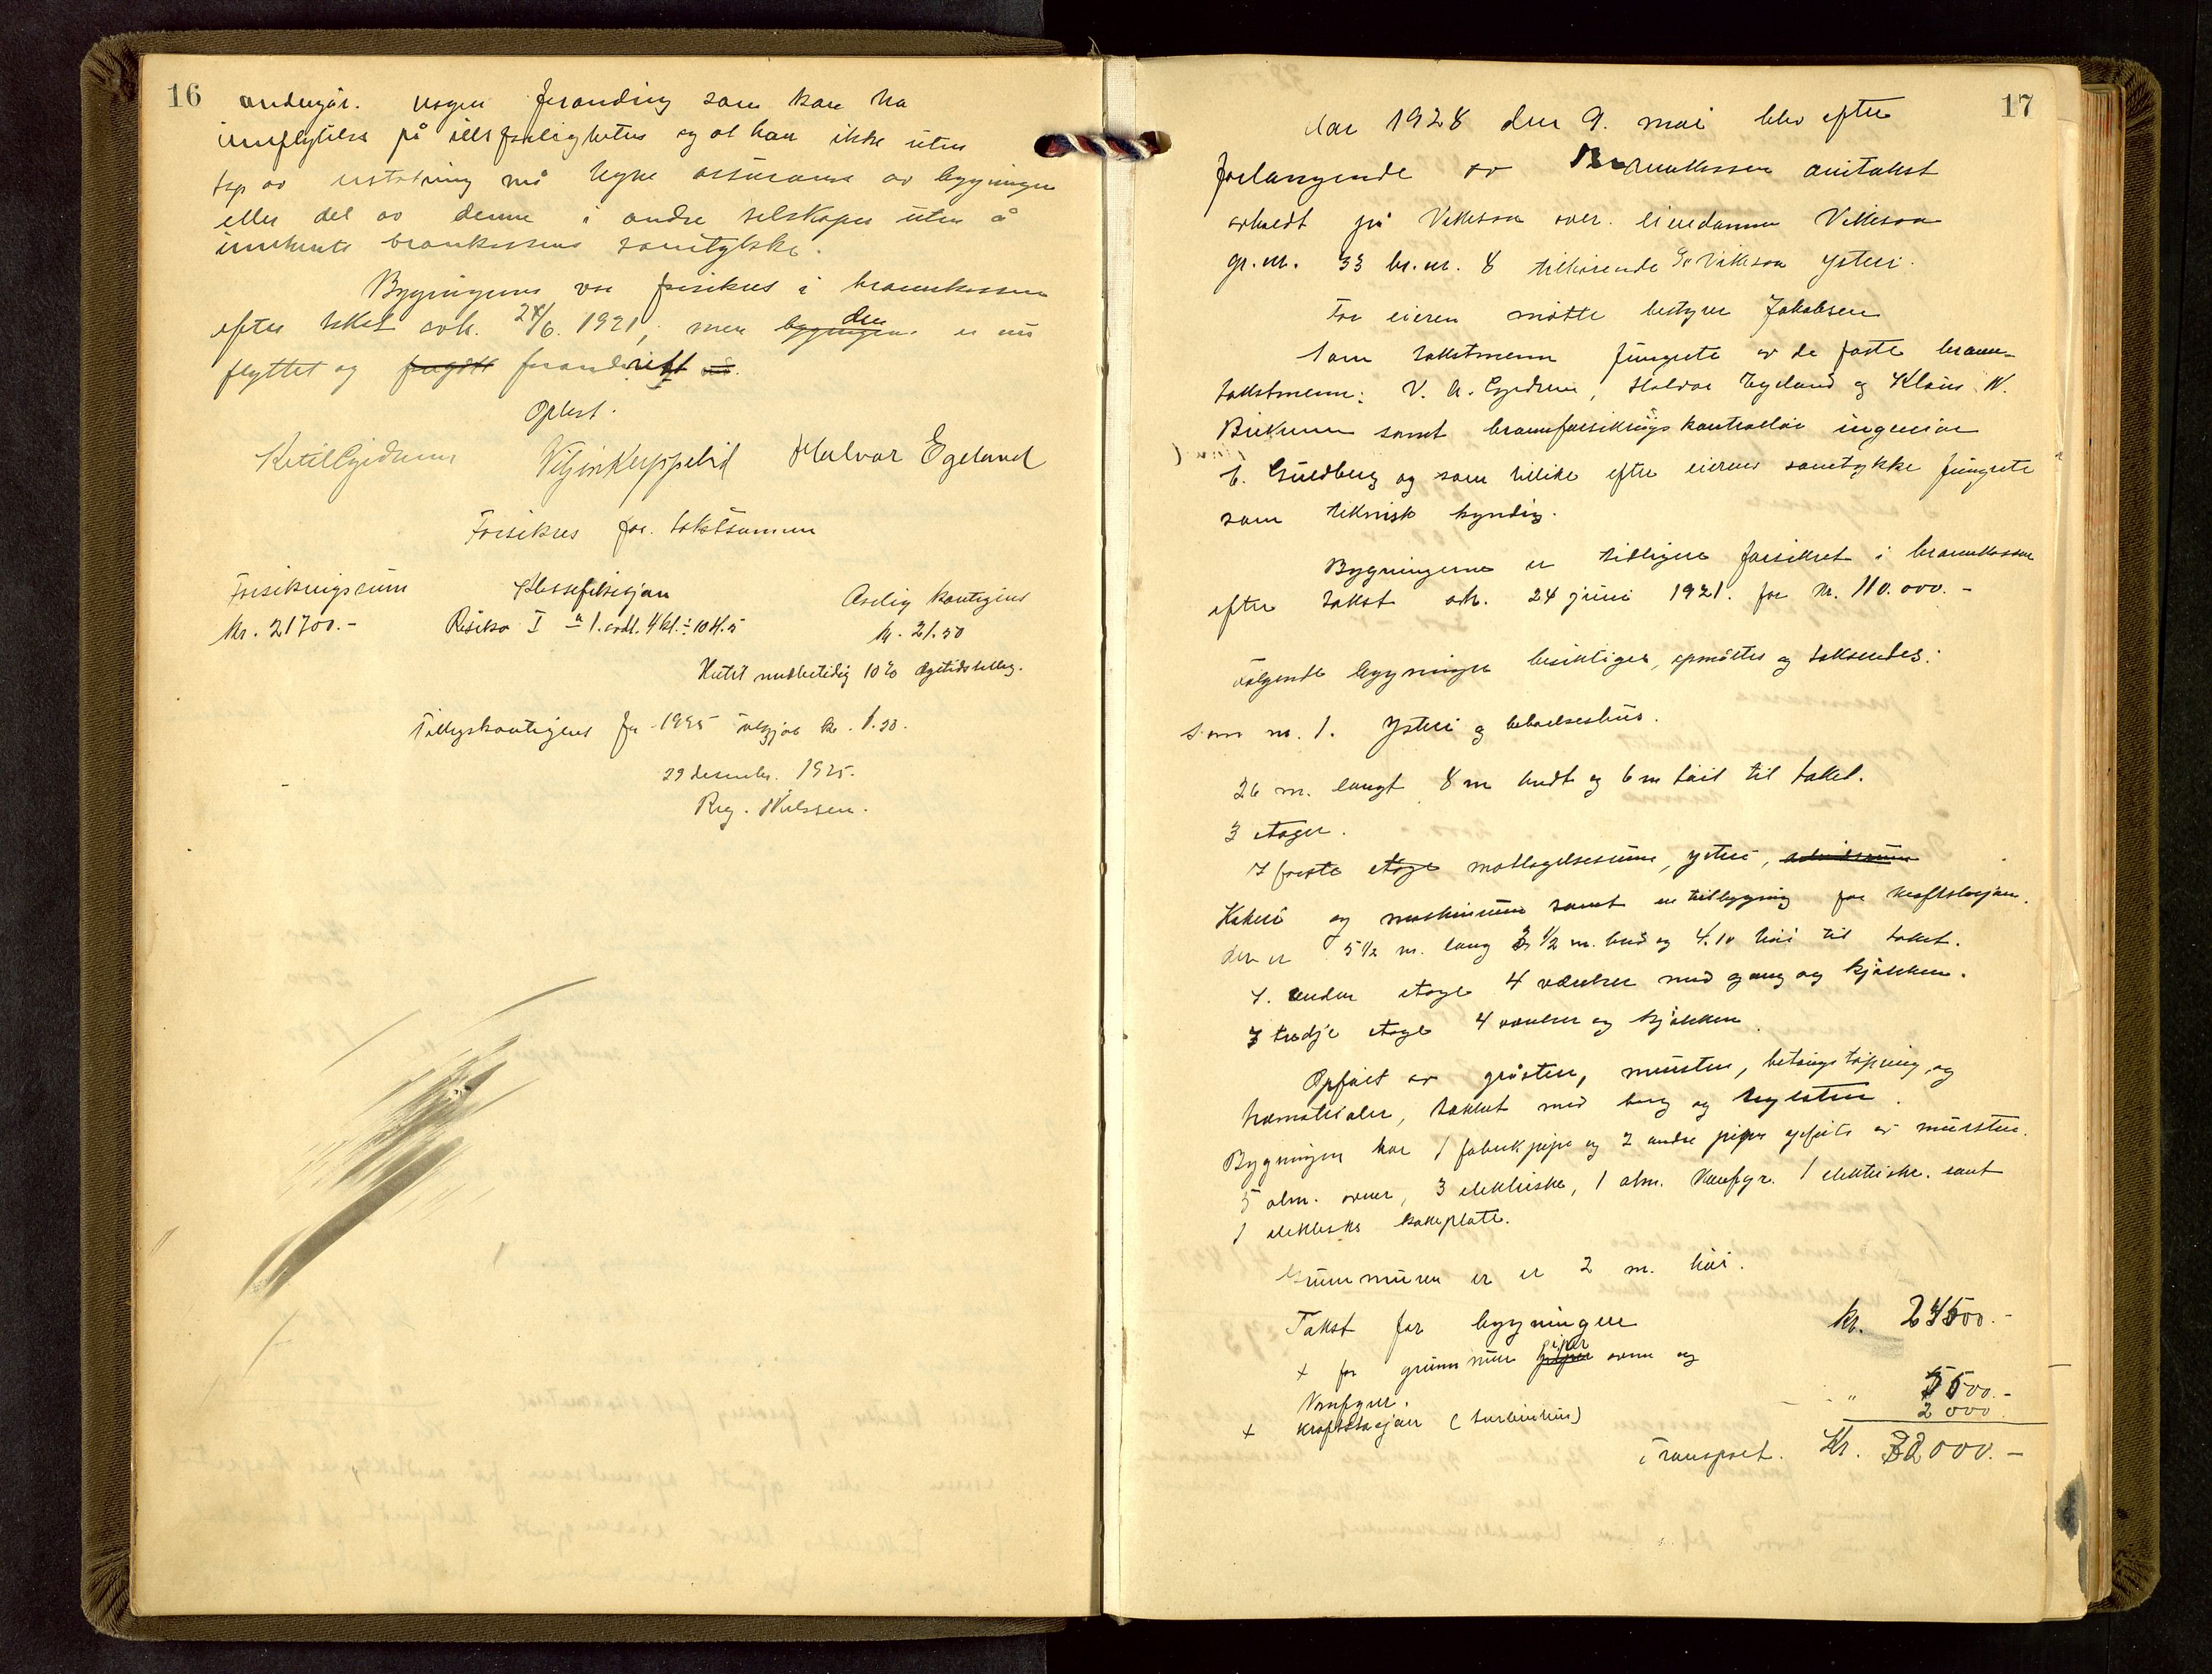 16
undergår. nogen forandring som kan ha
innflytelse på ildsfarligheten og at han ikke uten
tap av erstatning må tegne assuranse av bygningen
eller del av denne i andre selskaper uten å
innhente brankassens samtykke.
Bygningene var forsikret i brannkassen
efter takst avh. 24/6. 1921, men bygningene den er nu
flyttet og forandrett
Oplest.
Ketil Egedreim Halvar Egeland
Forsikres for takstsummen
Forsikringssum Klassefikasjon Årlig kontigens
Kr. 21700.- Risiko I a 1. avdl. 4 kl. ÷ 10 kl. 5 kr. 21.50
Hertil midlertidig 10% dyrtidstillæg.
Tillegskontigens for 1925 utgjør kr. 1.30.
29 desember. 1925.
Reg. Nilssen.
17
Aar 1928 den 9. mai blev efter
forlangende av Brannkassen omtakst
avholdt på Vikeson over. eiendommen Vikeson
gr. nr. 33 br. nr. 8 tilhørende Vikeson Ysteri.
For eieren møtte bestyrer Jakobsen
Som takstmenn fungerte av de faste brann-
takstmenn: Halvar Egeland og Klaus N.
samt brannforsikringskontrollør ingeniør
Guldberg og som tillike efter eierens samtykke fungerte
som teknisk kyndig.
Bygningerne er tidligere forsikret i brannkassen
efter takst avh. 24 juni 1921. for kr. 110.000.-
Følgende bygninger besiktiges, opmåltes og taksertes:
Som nr. 1. Ysteri og beboelseshus.
26 m. langt 8 m bredt og 6 m høit til taket.
3 etager.
I første etage mottagelsesrum, ysteri, arbeidsrum
Kokeri og maskinrum samt en tilbygning for kraftstasjon.
den er 5 1/2 m. lang 3 1/2 m. bred og 4.10 høi til taket.
I. anden etage 4 værelser med gang og kjøkken.
I tredje etage 4 værelser og kjøkken.
Opført av gråsten, mursten, betongstøpning og
trematerialer, tækket med torv og teglsten.
Bygningen har 1 fabrikkpipe og 2 andre piper opført av mursten.
5 alm. ovner, 3 elektriske, 1 alm. Komfyr. 1 elektriske. samt
1 elektriske kokeplate.
Grunnmuren er er 2 m. høi.
Takst for bygningen kr. 24500.-
+ for grunnmur piper ovne og
Komfyrer. " 5500.-
+ kraftstasjon (turbinhus) 2000
Transport. Kr. 32000.-